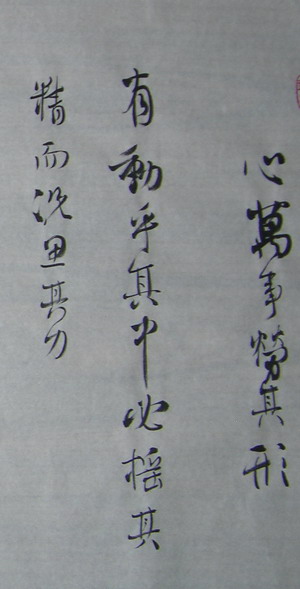 心萬事勞其形
有動乎其中必摇其
精而况思其力